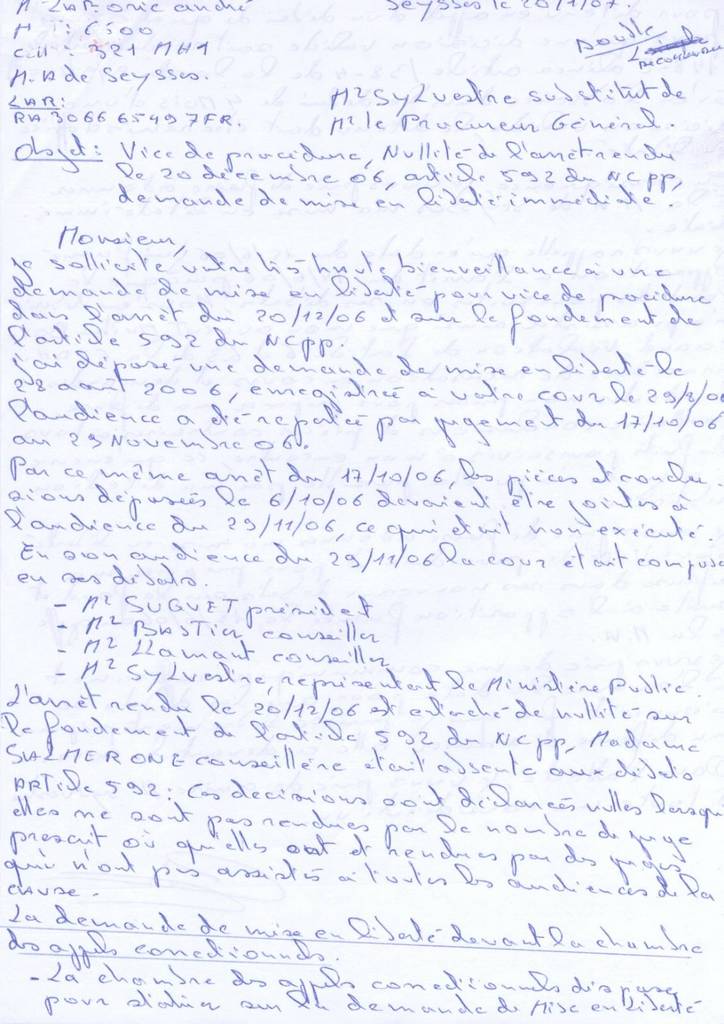 Mr LABORIE André Seysses le 20/1/07.
N° : 6500
Cell - 321 MH1 Double
M.A de Seysses.
LAR: Mr SYLVESTRE substitut de
RA 3066 6549 7FR. Mr le Procureur Général.
Objet : Vice de procédure, Nullité de l'arrêt rendu
le 20 décembre 06, article 592 du NCPP,
demande de mise en liberté immédiate.
Monsieur,
Je sollicite votre très haute bienveillance à une
demande de mise en liberté pour vice de procédure
dans l'arrêt du 20/12/06 et sur le fondement de
l'article 592 du NCPP.
J'ai déposé une demande de mise en liberté le
28 août 2006, enregistrée à votre cour le 29/8/06
l'audience a été renvoyée par jugement du 17/10/06
au 29 Novembre 06.
Par ce même arrêt du 17/10/06, les pièces et conclu
sions déposées le 6/10/06 devaient être jointes à
l'audience du 29/11/06, ce qui était non exécuté.
En son audience du 29/11/06 la cour était composé
en ses débats.
- Mr SUQUET président
- Mr BASTIER conseiller
- Mr LLamant conseiller
- Mr SYLVestre représentant le Ministère Public
L'arrêt rendu le 20/12/06 est entaché de nullité sur
le fondement de l'article 592 du NCPP, Madame
SALMERONE conseillère était absente aux débats
ARTicle 592 : Ces décisions sont déclarées nulles lorsqu'
elles ne sont pas rendues par le nombre de juge
prescrit où qu'elles ont et rendues par des juges
qui n'ont pas assistés à toutes les audiences de la
cause.
La demande de mise en liberté devant la chambre
des appels correctionnels.
- La chambre des appels correctionnels dispose
pour statuer sur la demande de Mise en Liberté